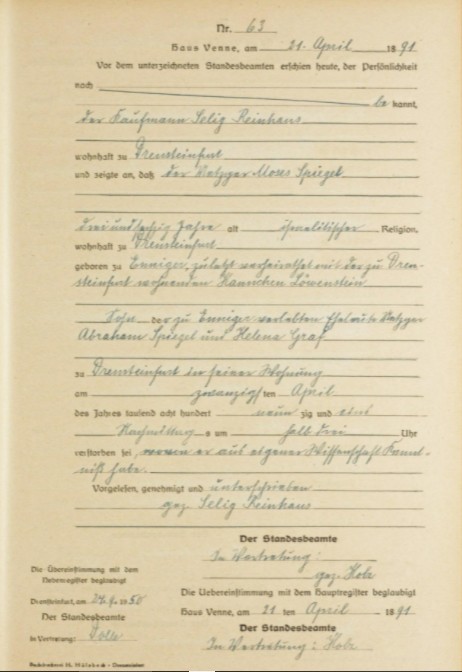 Nr. 63
Haus Venne, am 21. April 1891
Vor dem unterzeichneten Standesbeamten erschien heute, der Persönlichkeit
nach
be kannt,
der Kaufmann Selig Reinhaus
wohnhaft zu Drensteinfurt
und zeigte an, daß der Metzger Moses Spiegel
drei und sechzig Jahre alt israelitischer Religion,
wohnhaft zu Drensteinfurt
geboren zu Enniger, zuletzt verheirathet mit der zu Dren-
steinfurt wohnenden Hannchen Löwenstein
Sohn der zu Enniger verlebten Eheleute Metzger
Abraham Spiegel und Helena Graf
zu Drensteinfurt in seiner Wohnung
am zwanzigsten April
des Jahres tausend acht hundert neun zig und eins
Nachmittags um halb drei Uhr
verstorben sei, wovon er aus eigener Wissenschaft Kennt-
niß habe.
Vorgelesen, genehmigt und unterschrieben
gez. Selig Reinhaus
Der Standesbeamte
In Vertretung:
gez. Holz
Die Übereinstimmung mit dem
Nebenregister beglaubigt
Drensteinfurt, am 1950
Der Standesbeamte
In Vertretung:
Die Uebereinstimmung mit dem Hauptregister beglaubigt
Haus Venne, am 21 ten April 1891
Der Standesbeamte
In Vertretung: Holz